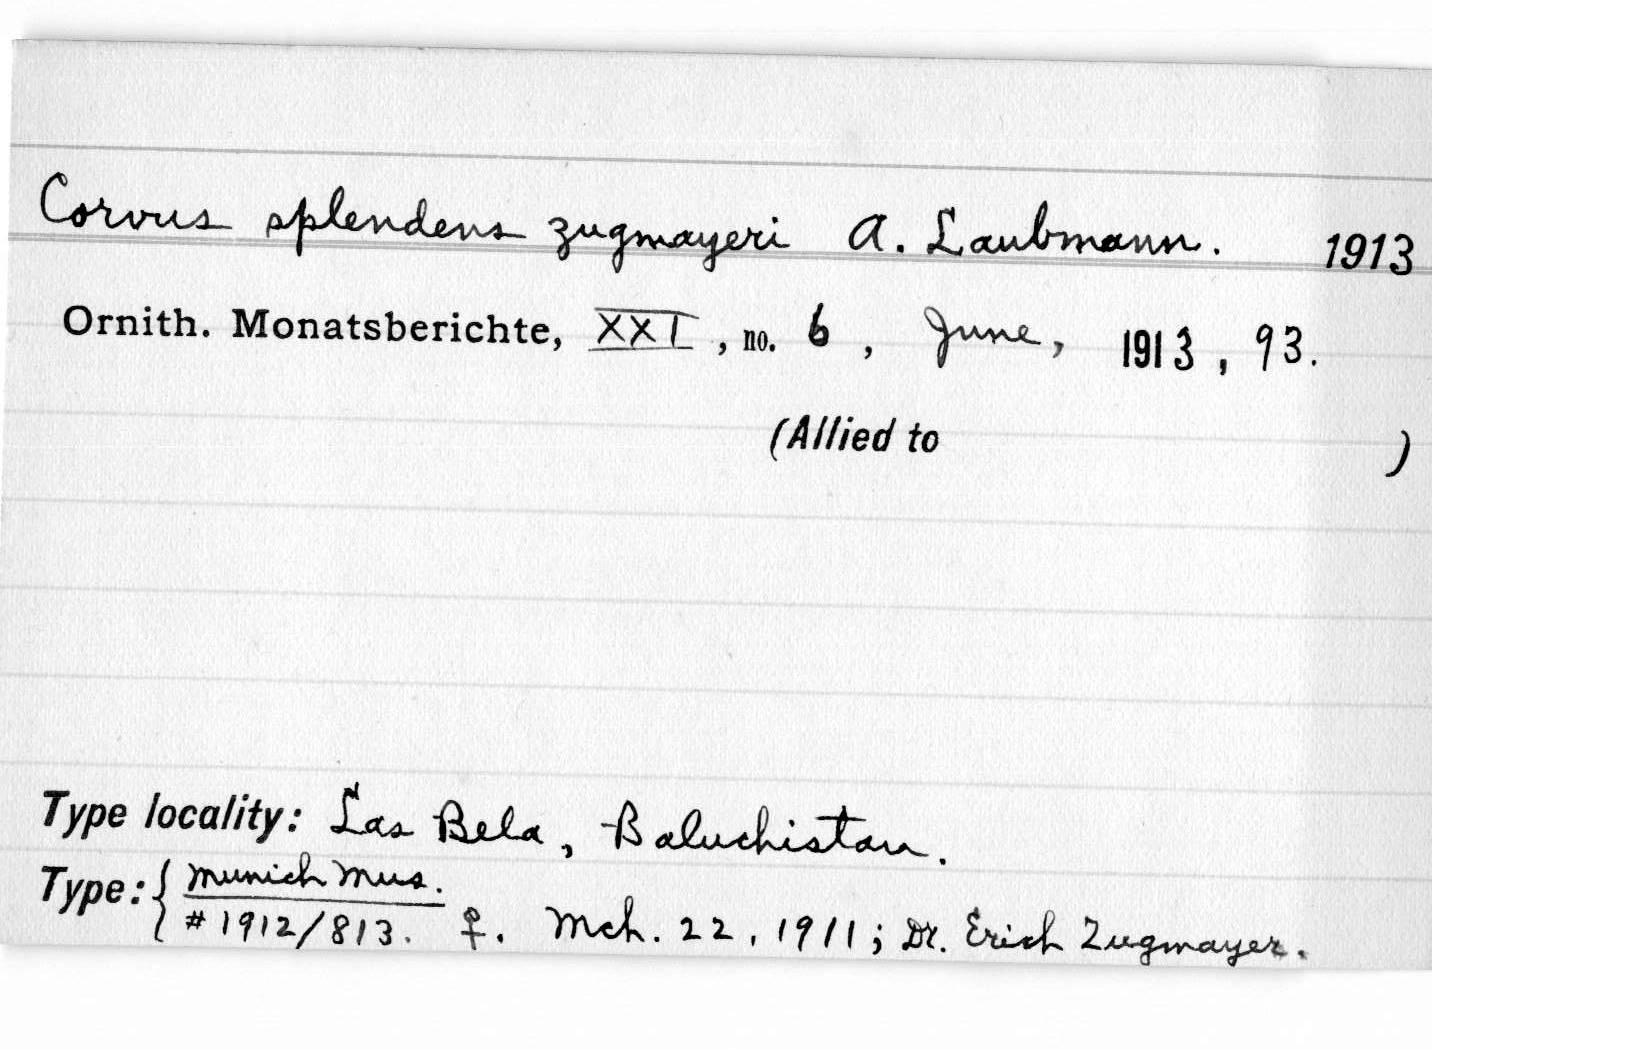 Corvus splendens zugmayeri A. Laubmann. 1913
Ornith. Monatsberichte, XXI, no. 6, June, 1913, 93.
(Allied to )
Type locality: Las Bela, Baluchistan.
Type: { Munich Mus.
#1912/813. ♀. Mch. 22, 1911; Dr. Erich Zugmayer.